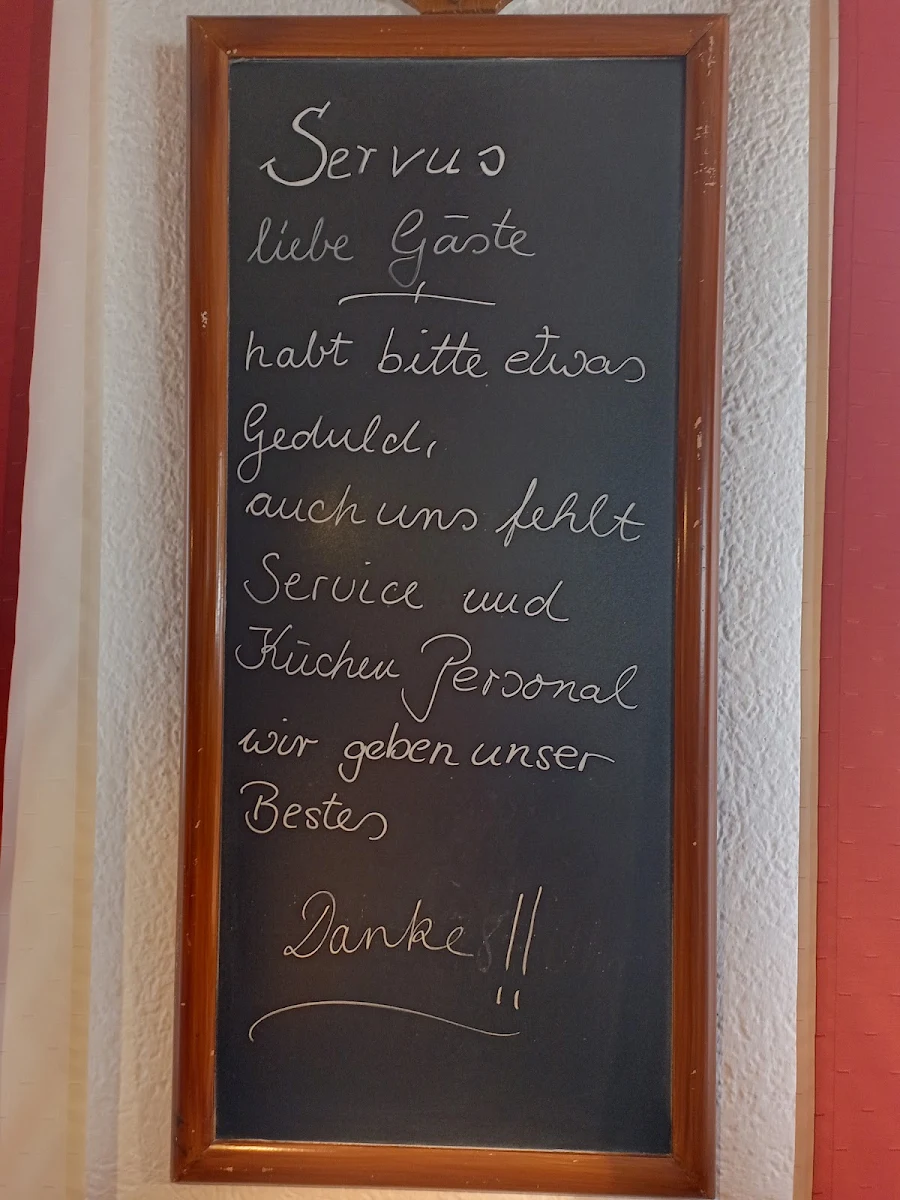 Servus
liebe Gäste
habt bitte etwas
Geduld,
auch uns fehlt
Service und
Küchen Personal
wir geben unser
Bestes
Danke!!